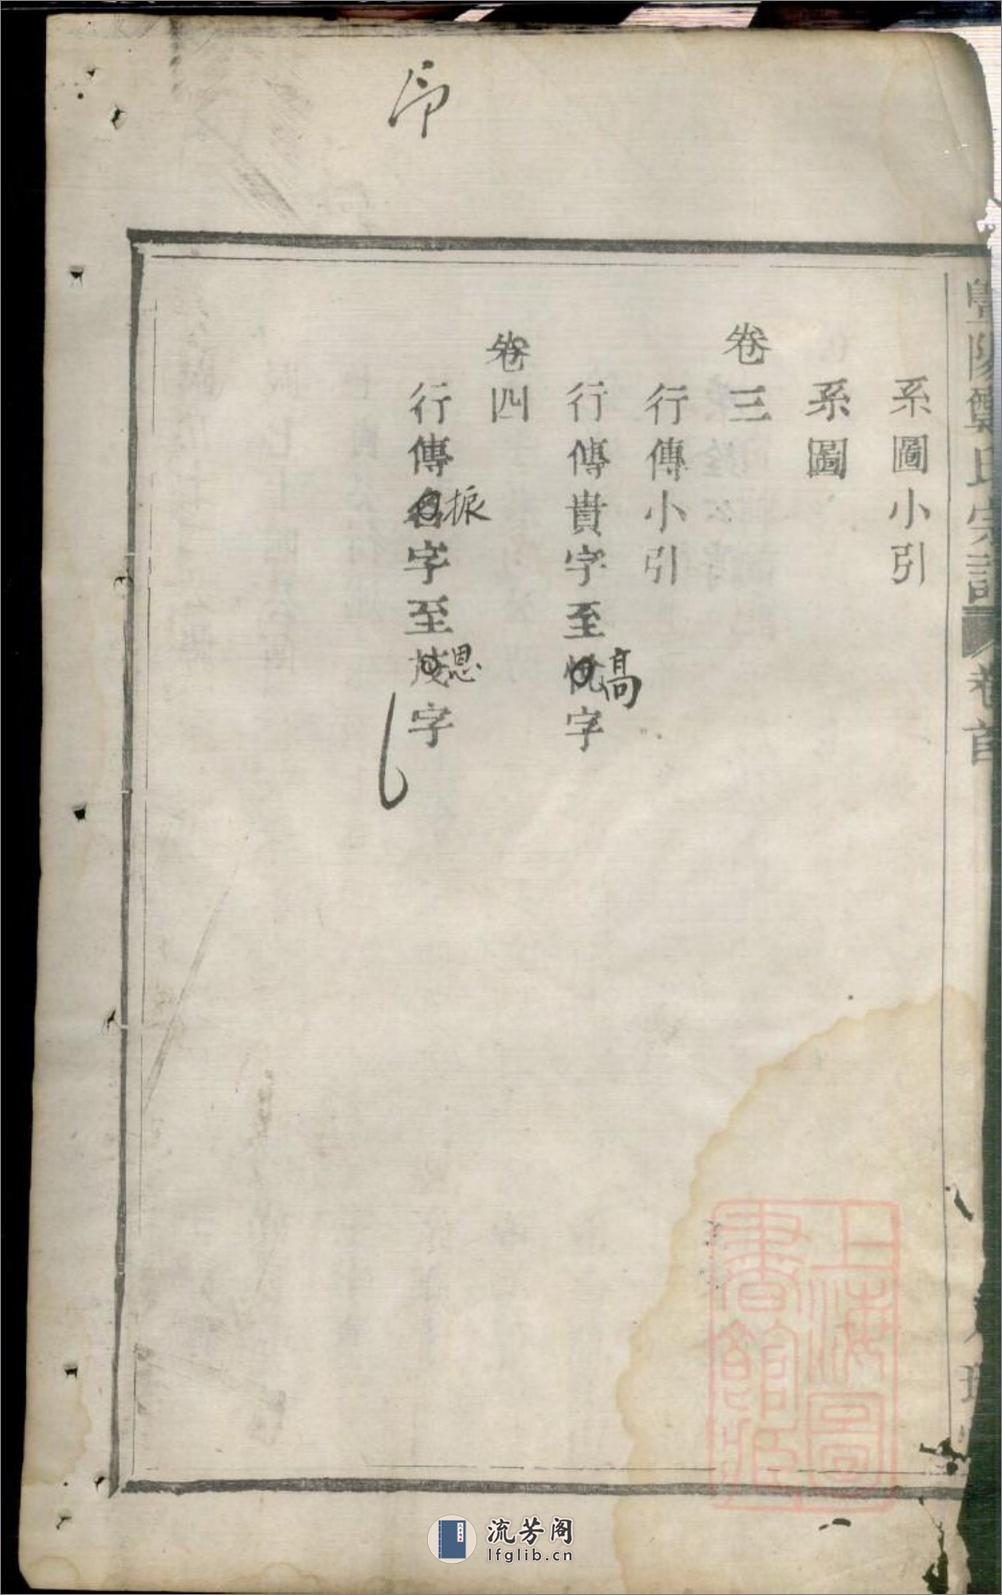 系圖小引
系圖
卷三
行傳小引
行傳貴字至悅字
高
卷四
行傳名字至茂字
振
恩
暨陽鄭氏宗譜
卷首
上海圖書館藏
流芳阁
lfglib.cn